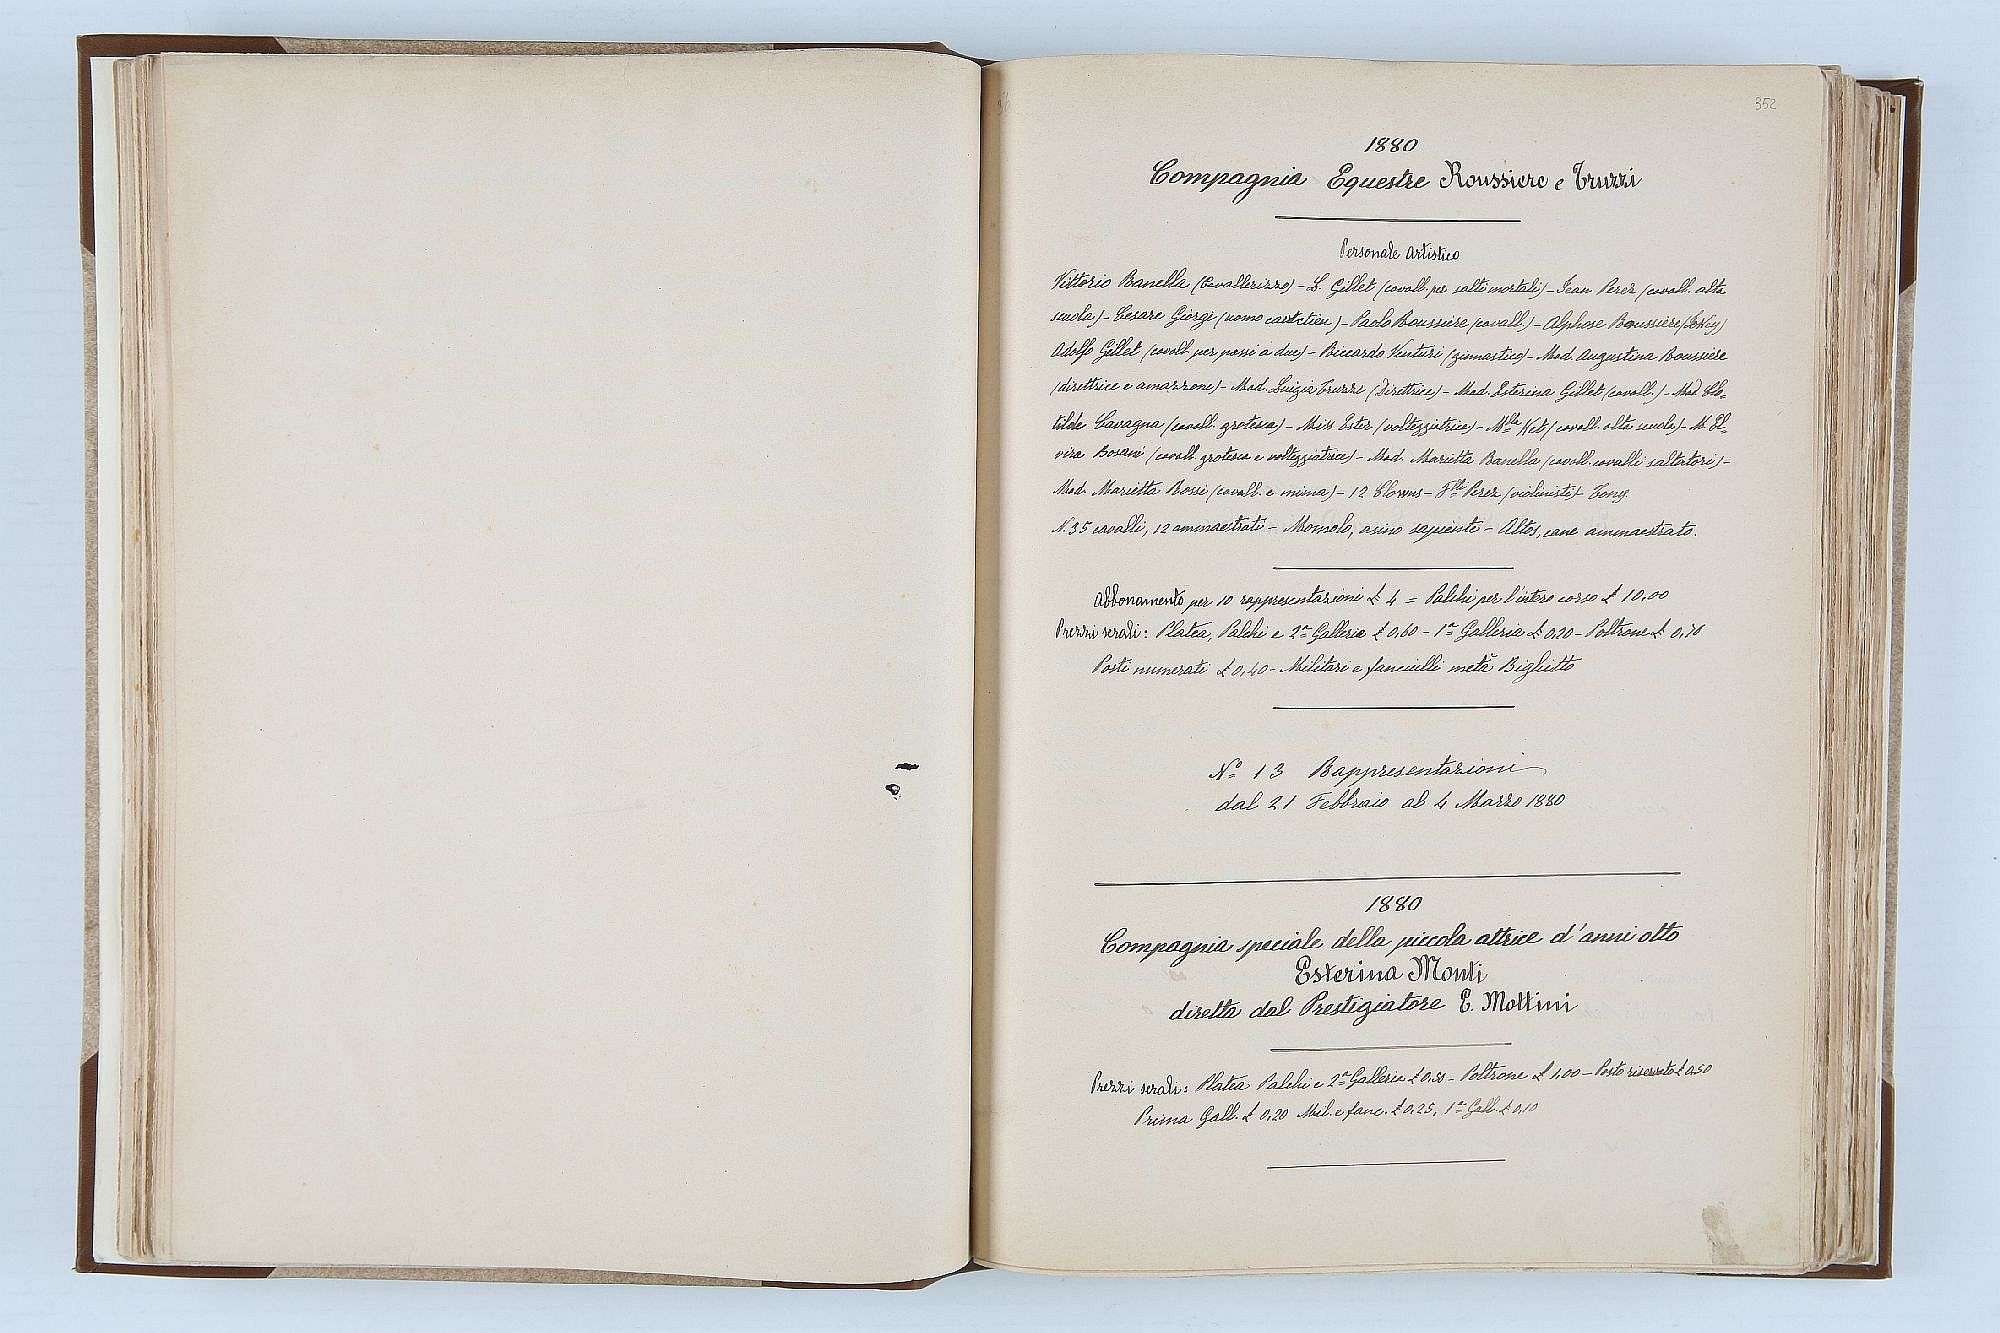 352
1880
Compagnia Equestre Roussiere e Truzzi
Personale Artistico
Vittorio Banella (Cavallerizzo) - L. Gillet (cavall. per salti mortali) - Jean Perez (cavall. alta
scuola) - Cesare Giorgi (uomo) - Paolo Roussiere (cavall.) - Alphose Roussiere (Jokey)
Adolfo Gillet (cavall. per passi a due) - Riccardo Venturi (ginnastico) - Mad. Augustina Roussiere
(direttrice e amazzone) - Mad. Luigia Truzzi (Direttrice) - Mad. Esterina Gillet (cavall.) - Mad Clo=
tilde Cavagna (cavall. grotesca) - Miss Ester (volteggiatrice) - Mlla Ket (cavall. alta scuola) - M. El=
vira Bosani (cavall. grotesca e volteggiatrice) - Mad. Marietta Banella (cavall. cavalli saltatori) -
Mad. Marietta Rossi (cavall. e mima) - 12 Clowns - Flli Perez (violinisti) - Tony
N. 35 cavalli, 12 ammaestrati - Momolo, asino sapiente - Altos, cane ammaestrato.
Abbonamento per 10 rappresentazioni £ 4 = Palchi per l'intero corso £ 10,00
Prezzi serali: Platea, Palchi e 2a Galleria £ 0,60 - 1a Galleria £ 0,20 - Poltrone £ 0,70
Posti numerati £ 0,40 - Militari e fanciulli metà Biglietto
No 13 Rappresentazioni
dal 21 Febbraio al 4 Marzo 1880
1880
Compagnia speciale della piccola attrice d'anni otto
Esterina Monti
diretta dal Prestigiatore E. Mottini
Prezzi serali: Platea Palchi e 2a Galleria £ 0,50 - Poltrone £ 1,00 - Posto riservato £ 0,50
Prima Gall. £ 0,20 Mil. e fanc. £ 0,25, 1a Gall. £ 0,10